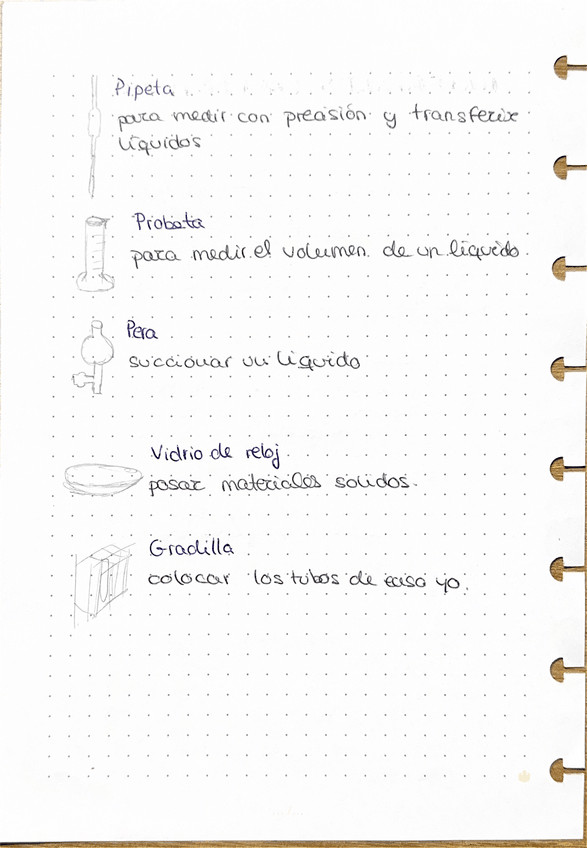 Pipeta
para medir con precisión y transferir
líquidos
Probeta
para medir el volumen de un líquido.
Pera
succionar un líquido
Vidrio de reloj
pesar materiales solidos.
Gradilla
colocar los tubos de ensayo.